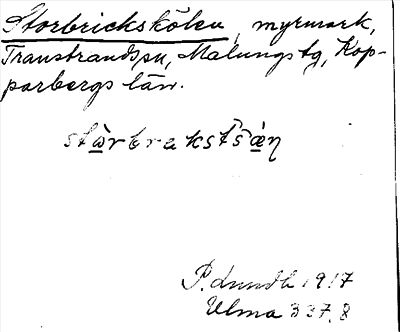 Storbrickskölen, myrmark,
Transtrands sn, Malungs tg, Kop-
parbergs län.
stὼrbrakstšǽŋ
P. Lundh 1917
Ulma 337:8